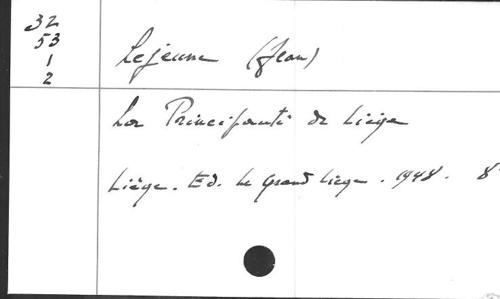 32
53
1
2
Lejeune (Jean)
La Principauté de Liège
Liège. Ed. Le Grand Liège. 1948. 8°